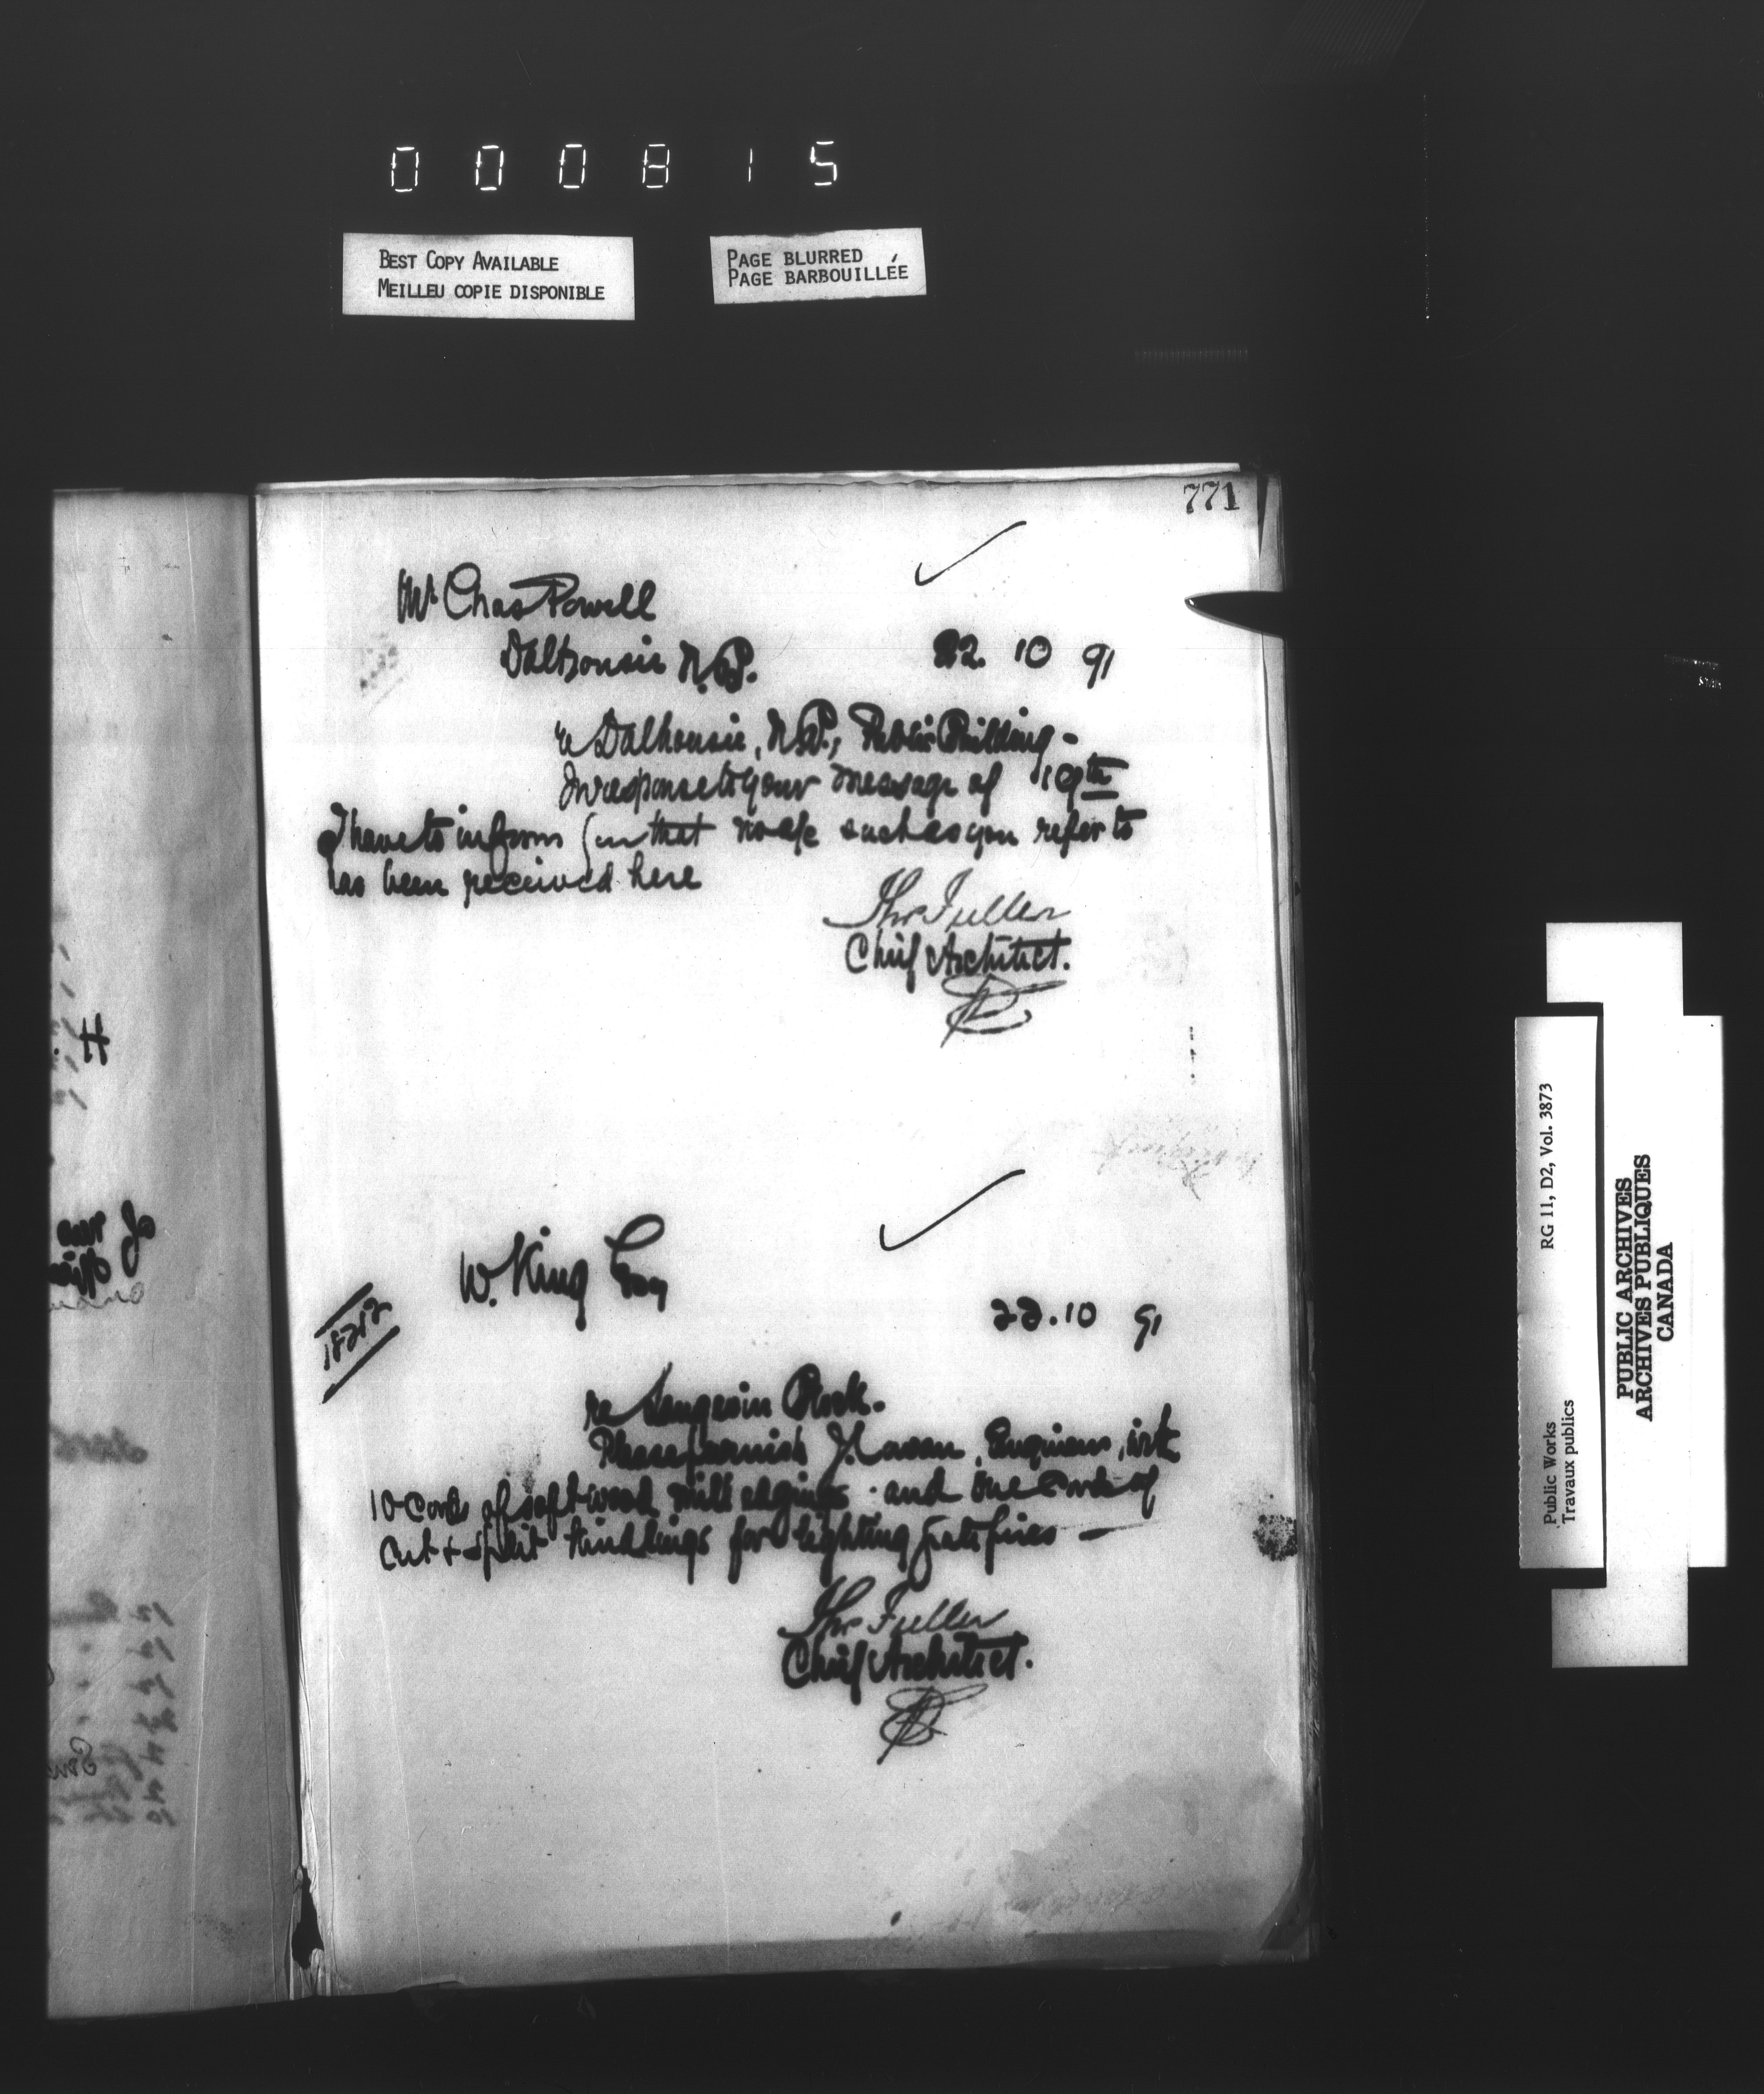 000815
BEST COPY AVAILABLE
MEILLEU COPIE DISPONIBLE
PAGE BLURRED
PAGE BARBOUILLÉE
771
Mr Chas Powell
Dalhousie N.B.
22. 10 91
re Dalhousie, N.B., Public Building -
In response to your message of 19th
I have to inform you that no a/c such as you refer to
has been received here
Thos Fuller
Chief Architect.
W. King Esq
22.10 91
18212
re Langevin Block.
Please furnish J. Engineer, with
10 cords of softwood mill edgings and one cord of
cut & split kindlings for lighting grate fires —
Thos Fuller
Chief Architect.
Public Works RG 11, D2, Vol. 3873
Travaux publics
PUBLIC ARCHIVES
ARCHIVES PUBLIQUES
CANADA